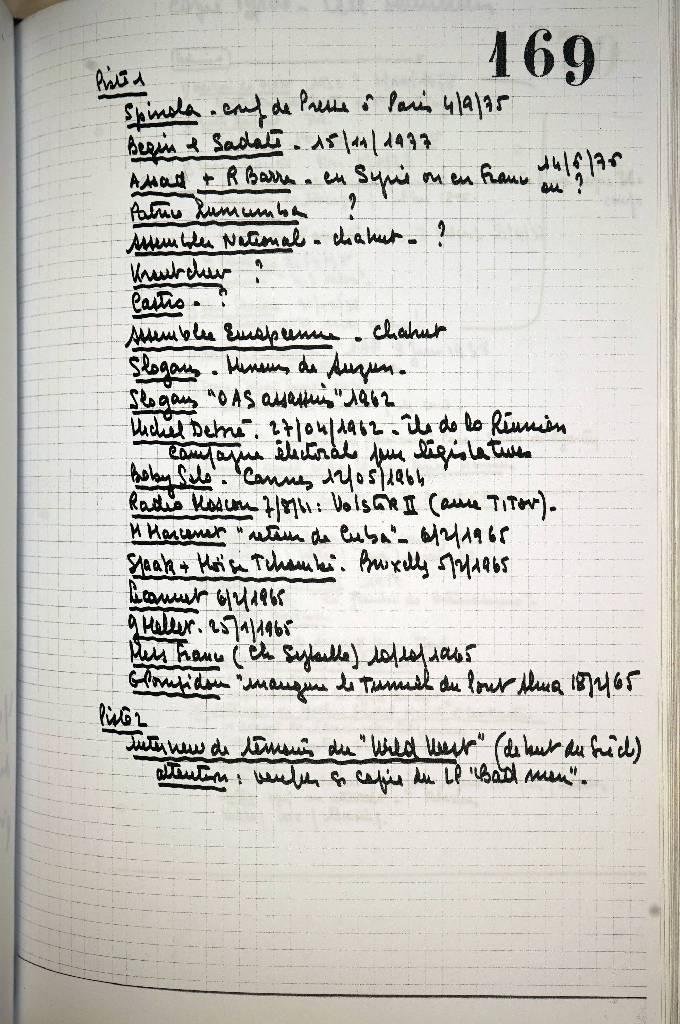 169
Piste 1
Spinola - conf de Presse à Paris 4/9/75
Begin & Sadate - 15/11/1977
Assad + R Barre - en Syrie ou en France 14/6/76
ou ?
Patrice Lumumba ?
Assemblée National - chahut - ?
Kroutchev ?
Castro - ?
Assemblée Européenne - chahut
Slogans - de
Slogans "OAS assassins" 1962
Michel Debré. 27/04/1962 - île de la Réunion
campagne électorale pour législatives
Boby Solo - Cannes 12/05/1964
Radio Moscou 7/8/61: VOLSTOK II (avec TITOV).
M "retour de Cuba" - 6/2/1965
Spaak + Moïse Tchombé - Bruxelles 5/2/1965
Lecanuet 6/2/1965
25/1/1965
Mess France (Ch Sybille) 10/10/1965
G Pompidou "inaugure le Tunnel du Pont Alma 18/2/65
Piste 2
interview de témoins du "Wild West" (debut du Siècl)
attention: verifier si copie du LP "Bad man".